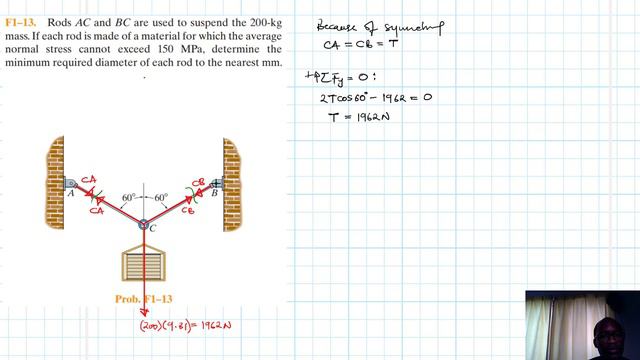 F1–13. Rods AC and BC are used to suspend the 200-kg
mass. If each rod is made of a material for which the average
normal stress cannot exceed 150 MPa, determine the
minimum required diameter of each rod to the nearest mm.
Because of symmetry
CA = CB = T
+↑ΣFy = 0 :
2Tcos60° − 1962 = 0
T = 1962N
CA
CB
A
B
60°
60°
CA
CB
C
Prob. F1–13
(200)(9.81) = 1962N